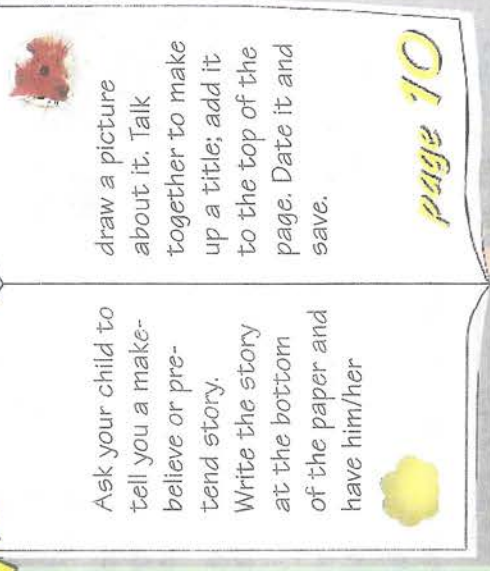 Ask your child to
tell you a make-
believe or pre-
tend story.
Write the story
at the bottom
of the paper and
have him/her
draw a picture
about it. Talk
together to make
up a title; add it
to the top of the
page. Date it and
save.
page 10